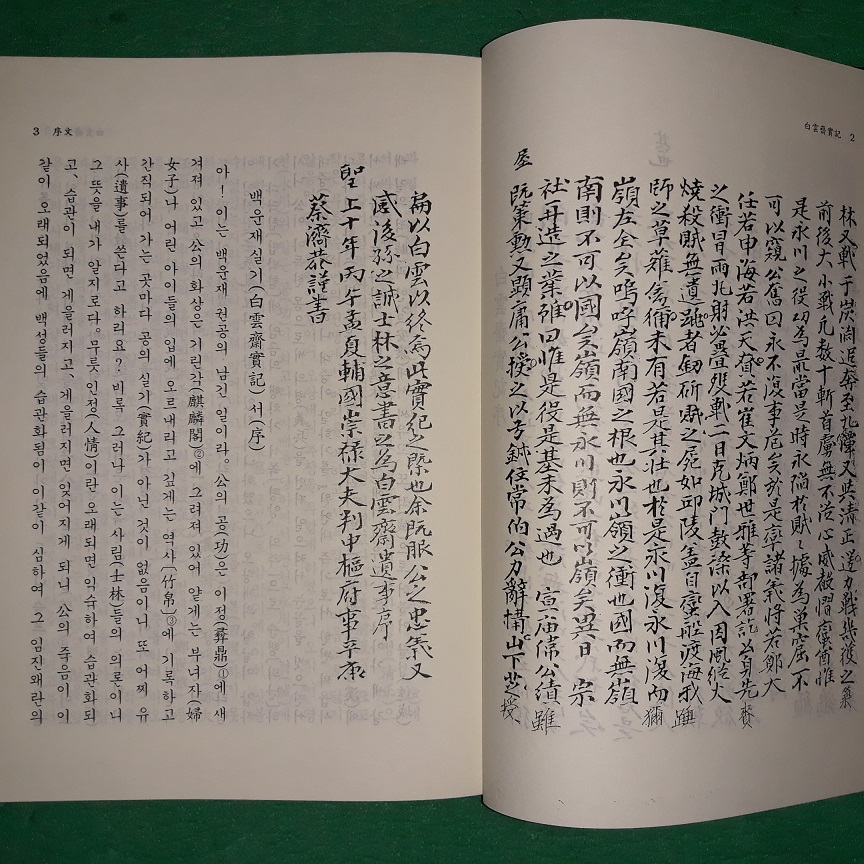 白雲齋實記 2
林又戰于炭澗追奔至九潭又與清正逆力戰幾獲之 築
前後大小戰凡數十斬首虜無不從心威聲慴蠻酋惟
是永川之役功為最當是時永陷於賊〻據為巢窟不
可以窺公奮曰永不復事危矣於是率諸義將若鄭大
任若申海若洪天賚若崔文炳鄭世雅等部署訖公身先 賚
之衝冒雨兆射必疊殪戰二日克城門鼓譟以入因風縱火
燒殺賊無遺踵者劒斫賊之屍如邱陵蓋自蠻船渡海我 踵
師之草薙禽獮未有若是其壯也於是永川復永川復而 獮
嶺左全矣嗚呼嶺南國之根也永川嶺之衝也國而無嶺
南則不可以國矣嶺而無永川則不可以嶺矣異日 宗
社再造之業雖曰惟是役是基未為過也 宣庙偉公績 雖
既策勳又顯庸公授之以 鉞 常伯公力辭構山下芝 授
屋
扁以白雲以終為此實紀之槩也余既服公之忠義又
感後孫之誠士林之意書之為白雲齋遺事序
聖上十年丙午孟夏輔國崇祿大夫判中樞府事平康
蔡濟恭謹書
백운재실기(白雲齋實記) 서(序)
아! 이는 백운재 권공의 남긴 일이라. 공의 공(功)은 이정(彛鼎)①에 새
겨져 있고 공의 화상은 기린각(麒麟閣)②에 그려져 있어 얕게는 부녀자(婦
女子)나 어린 아이들의 입에 오르내리고 깊게는 역사(竹帛)③에 기록하고
간직되어 가는 곳마다 공의 실기(實紀)가 아닌 것이 없음이니 또 어찌 유
사(遺事)를 쓴다고 하리요? 비록 그러나 이는 사림(士林)들의 의론이니
그 뜻을 내가 알지로다. 무릇 인정(人情)이란 오래되면 익숙하여 습관화되
고, 습관이 되면 게을러지고, 게을러지면 잊어지게 되니 공의 죽음이 이
같이 오래되었음에 백성들의 습관화됨이 이같이 심하여 그 임진왜란의
3 序文